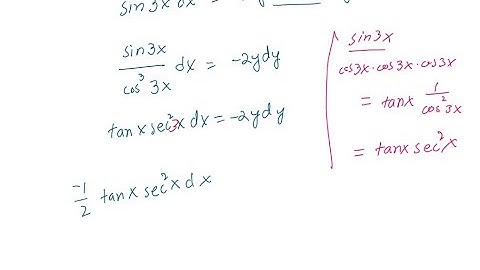 sin3x dx =
sin3x / cos³3x dx = -2ydy
tanx sec²3x dx = -2ydy
-1/2 tanx sec²x dx
sin3x / cos3x·cos3x·cos3x
= tanx 1/cos²3x
= tanx sec²x